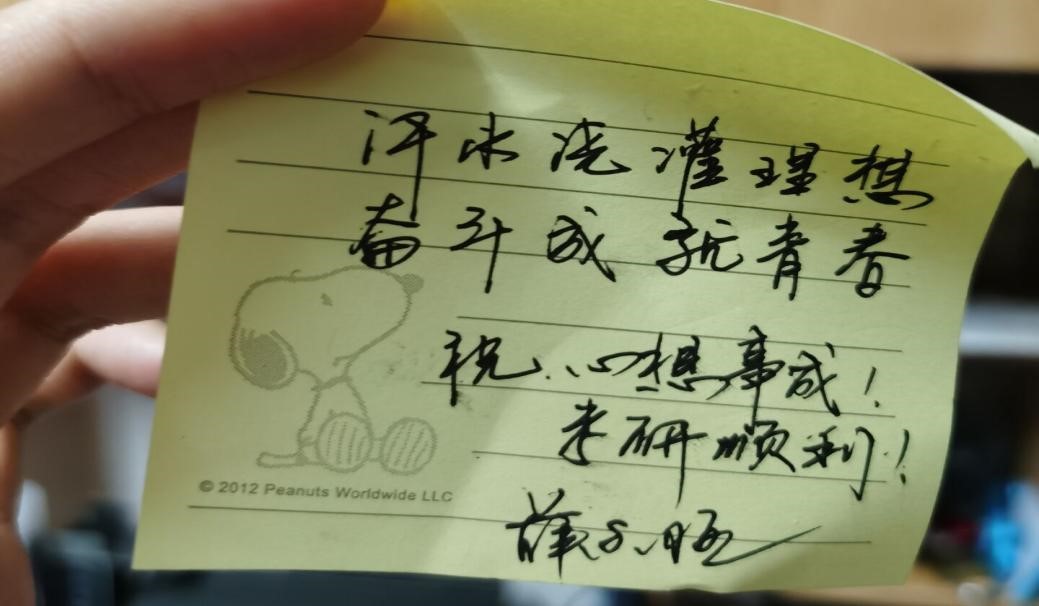 汗水浇灌理想
奋斗成就青春
祝心想事成！
考研顺利！
© 2012 Peanuts Worldwide LLC
薛